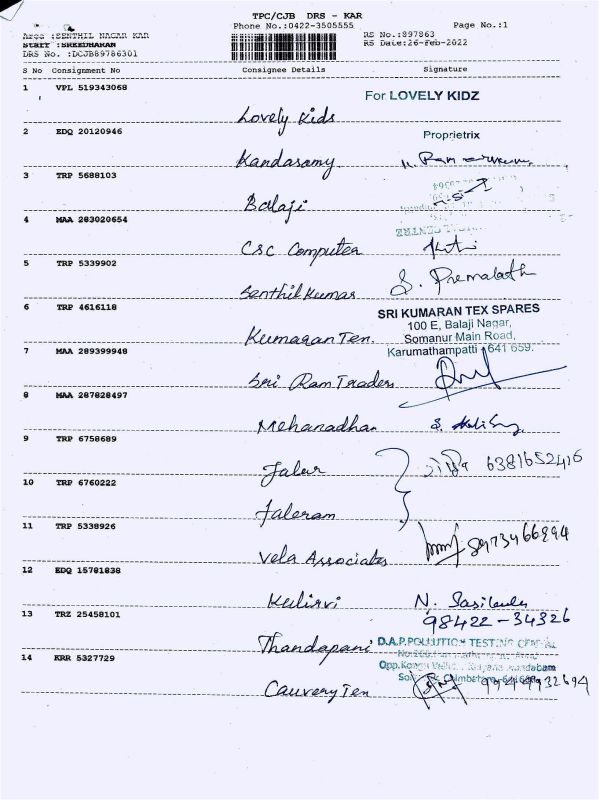 TPC/CJB DRS - KAR
Phone No.:0422-3505555 Page No.:1
Area :SENTHIL NAGAR KAR RS No.:897863
Staff :SREEDHARAN RS Date:26-Feb-2022
DRS No. :DCJB89786301
S No Consignment No Consignee Details Signature
1 VPL 519343068 For LOVELY KIDZ
Lovely Kids
2 EDQ 20120946 Proprietrix
Kandasamy
3 TRP 5688103
Balaji
4 MAA 283020654
CSC Computer
5 TRP 5339902 S. Premalath
Senthil Kumar
6 TRP 4616118 SRI KUMARAN TEX SPARES
100 E, Balaji Nagar,
Kumaran Ten. Somanur Main Road,
7 MAA 289399948 Karumathampatti - 641 659.
Sri Ram Traders
8 MAA 287828497
Mehanadhan
9 TRP 6758689
Jaler 6381652416
10 TRP 6760222
Jaleram
11 TRP 5338926
Vela Associates 8973466994
12 EDQ 15781838
Kulirvi N. Sasikala
13 TRZ 25458101 98422-34326
Thandapani D.A.P.POLLUTION TESTING CENTRE
14 KRR 5327729
Cauvery Ten